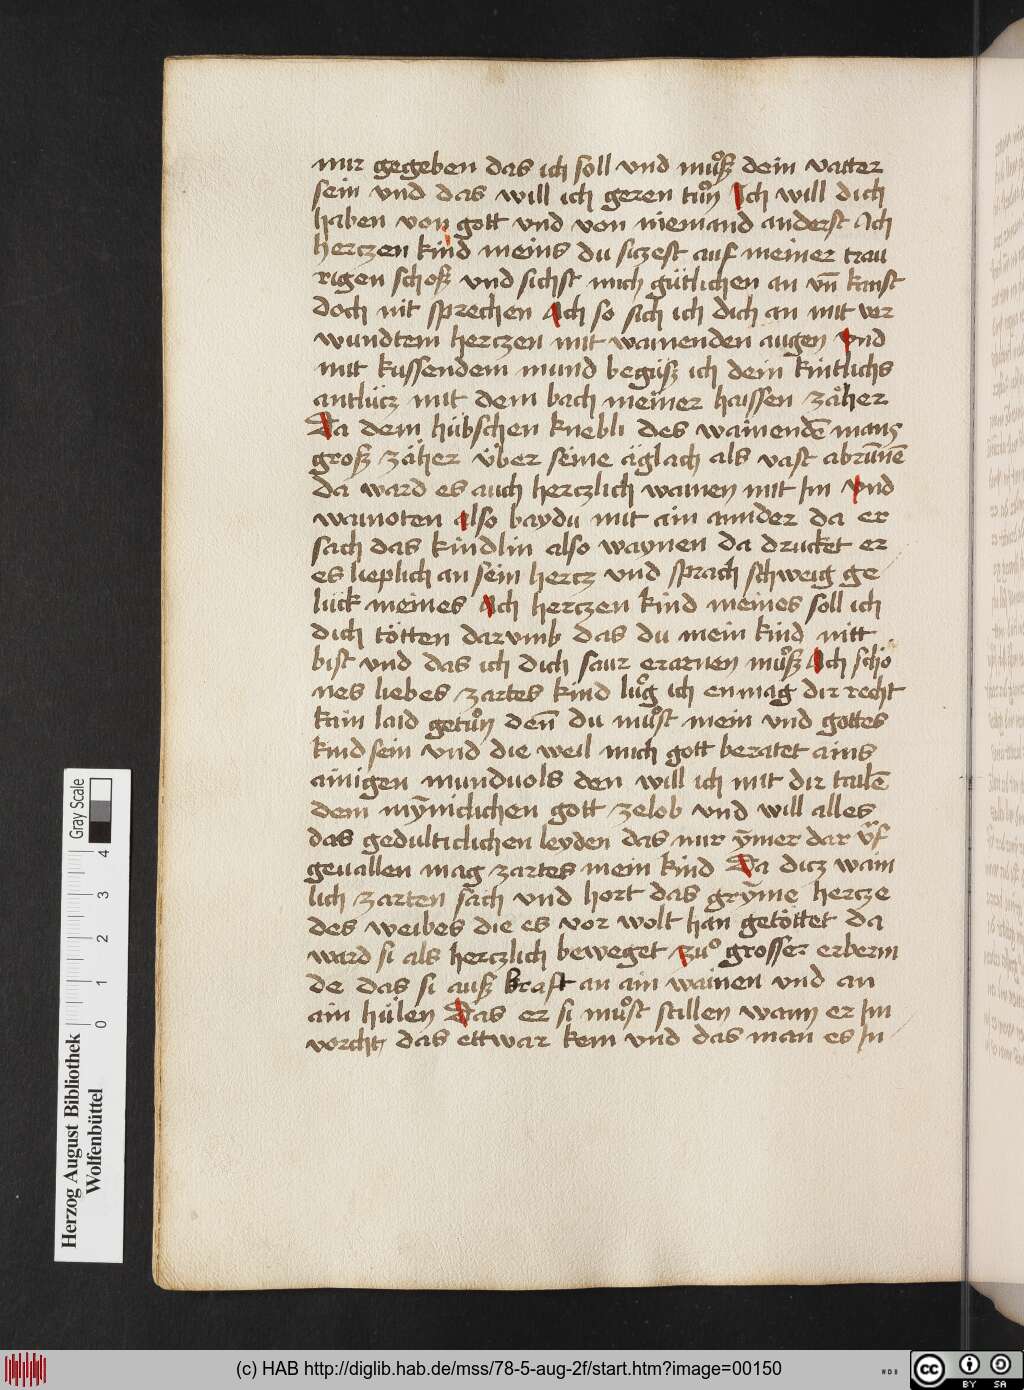 mir gegeben das ich soll vnd muͦß dein vatter
sein vnd das will ich geren tuͦn Ich will dich
haben von gott vnd von niemand anderst Ach
hertzen kind meins du sizest auf meiner trau
rigen schoß vnd sichst mich gütlichen an vn̄ kanst
doch nit sprechen Ach so sich ich dich an mit ver
wundtem hertzen mit wainenden augen vnd
mit kussendem mund begrüß ich dein kintlichs
antlücz mit dem bach meiner haissen zäher
Da dem hübschen knebli des wainendē mans
groß zäher über seine äglach als vast abrūnē
da ward es auch hertzlich wainen mit Im vnd
wainoten also baydu mit ain annder da er
sach das kindlin also waynen da drucket er
es lieplich an sein hertz vnd sprach schweig ge
lück meines Ach hertzen kind meines soll ich
dich tötten darvmb das du mein kind nitt
bist vnd das ich dich saur erarnen muͦß Ach schö
nes liebes zartes kind luͦg ich enmag dir recht
kain laid getuͦn den̄ du muͦst mein vnd gottes
kind sein vnd die weil mich gott beratet ains
ainigen munduols den will ich mit dir tailē
dem mȳniclichen gott zelob vnd will alles
das gedulticlichen leyden das mir ȳmer dar vf
geuallen mag zartes mein kind Da dicz wain
lich zarten sach vnd hort das grȳme hertze
des weibes die es vor wolt han getöttet da
ward si als hertzlich beweget zuͦ grosser erberm
de das si auß kraft an ain wainen vnd an
ain hülen Das er si muͦst stillen wann er Im
vorcht das ettwar kem vnd das man es In
Gray Scale
0 1 2 3 4
Herzog August Bibliothek
Wolfenbüttel
(c) HAB http://diglib.hab.de/mss/78-5-aug-2f/start.htm?image=00150
WDB
cc BY SA